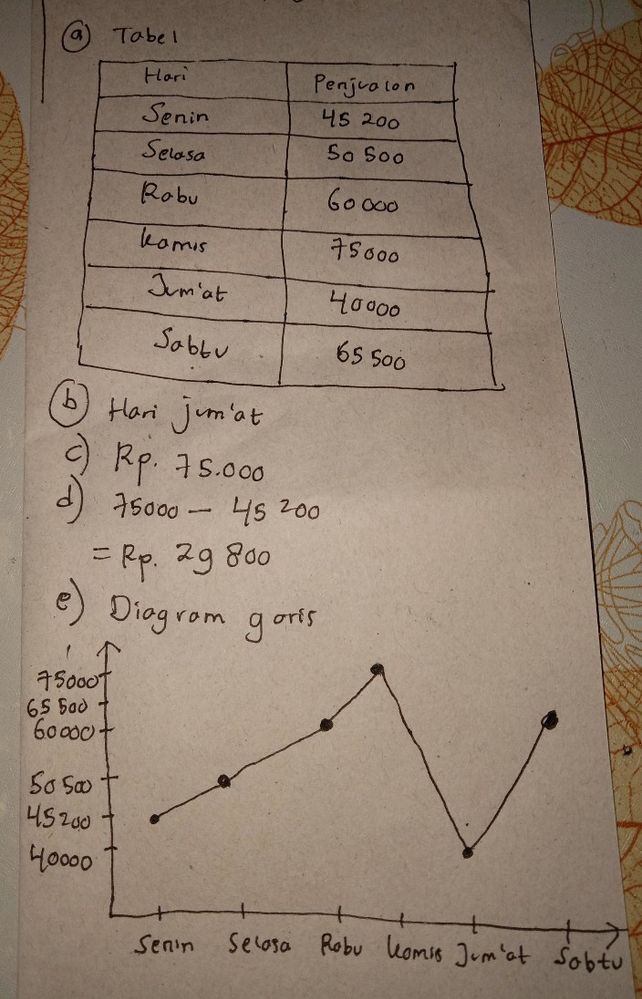 a Tabel
Hari Penjualan
Senin 45 200
Selasa 50 500
Rabu 60 000
Kamis 75000
Jum'at 40000
Sabtu 65 500
b Hari jum'at
c) Rp. 75.000
d) 75000 - 45 200
= Rp. 29 800
e) Diagram garis
75000
65 500
60000
50 500
45200
40000
Senin Selasa Rabu Kamis Jum'at Sabtu